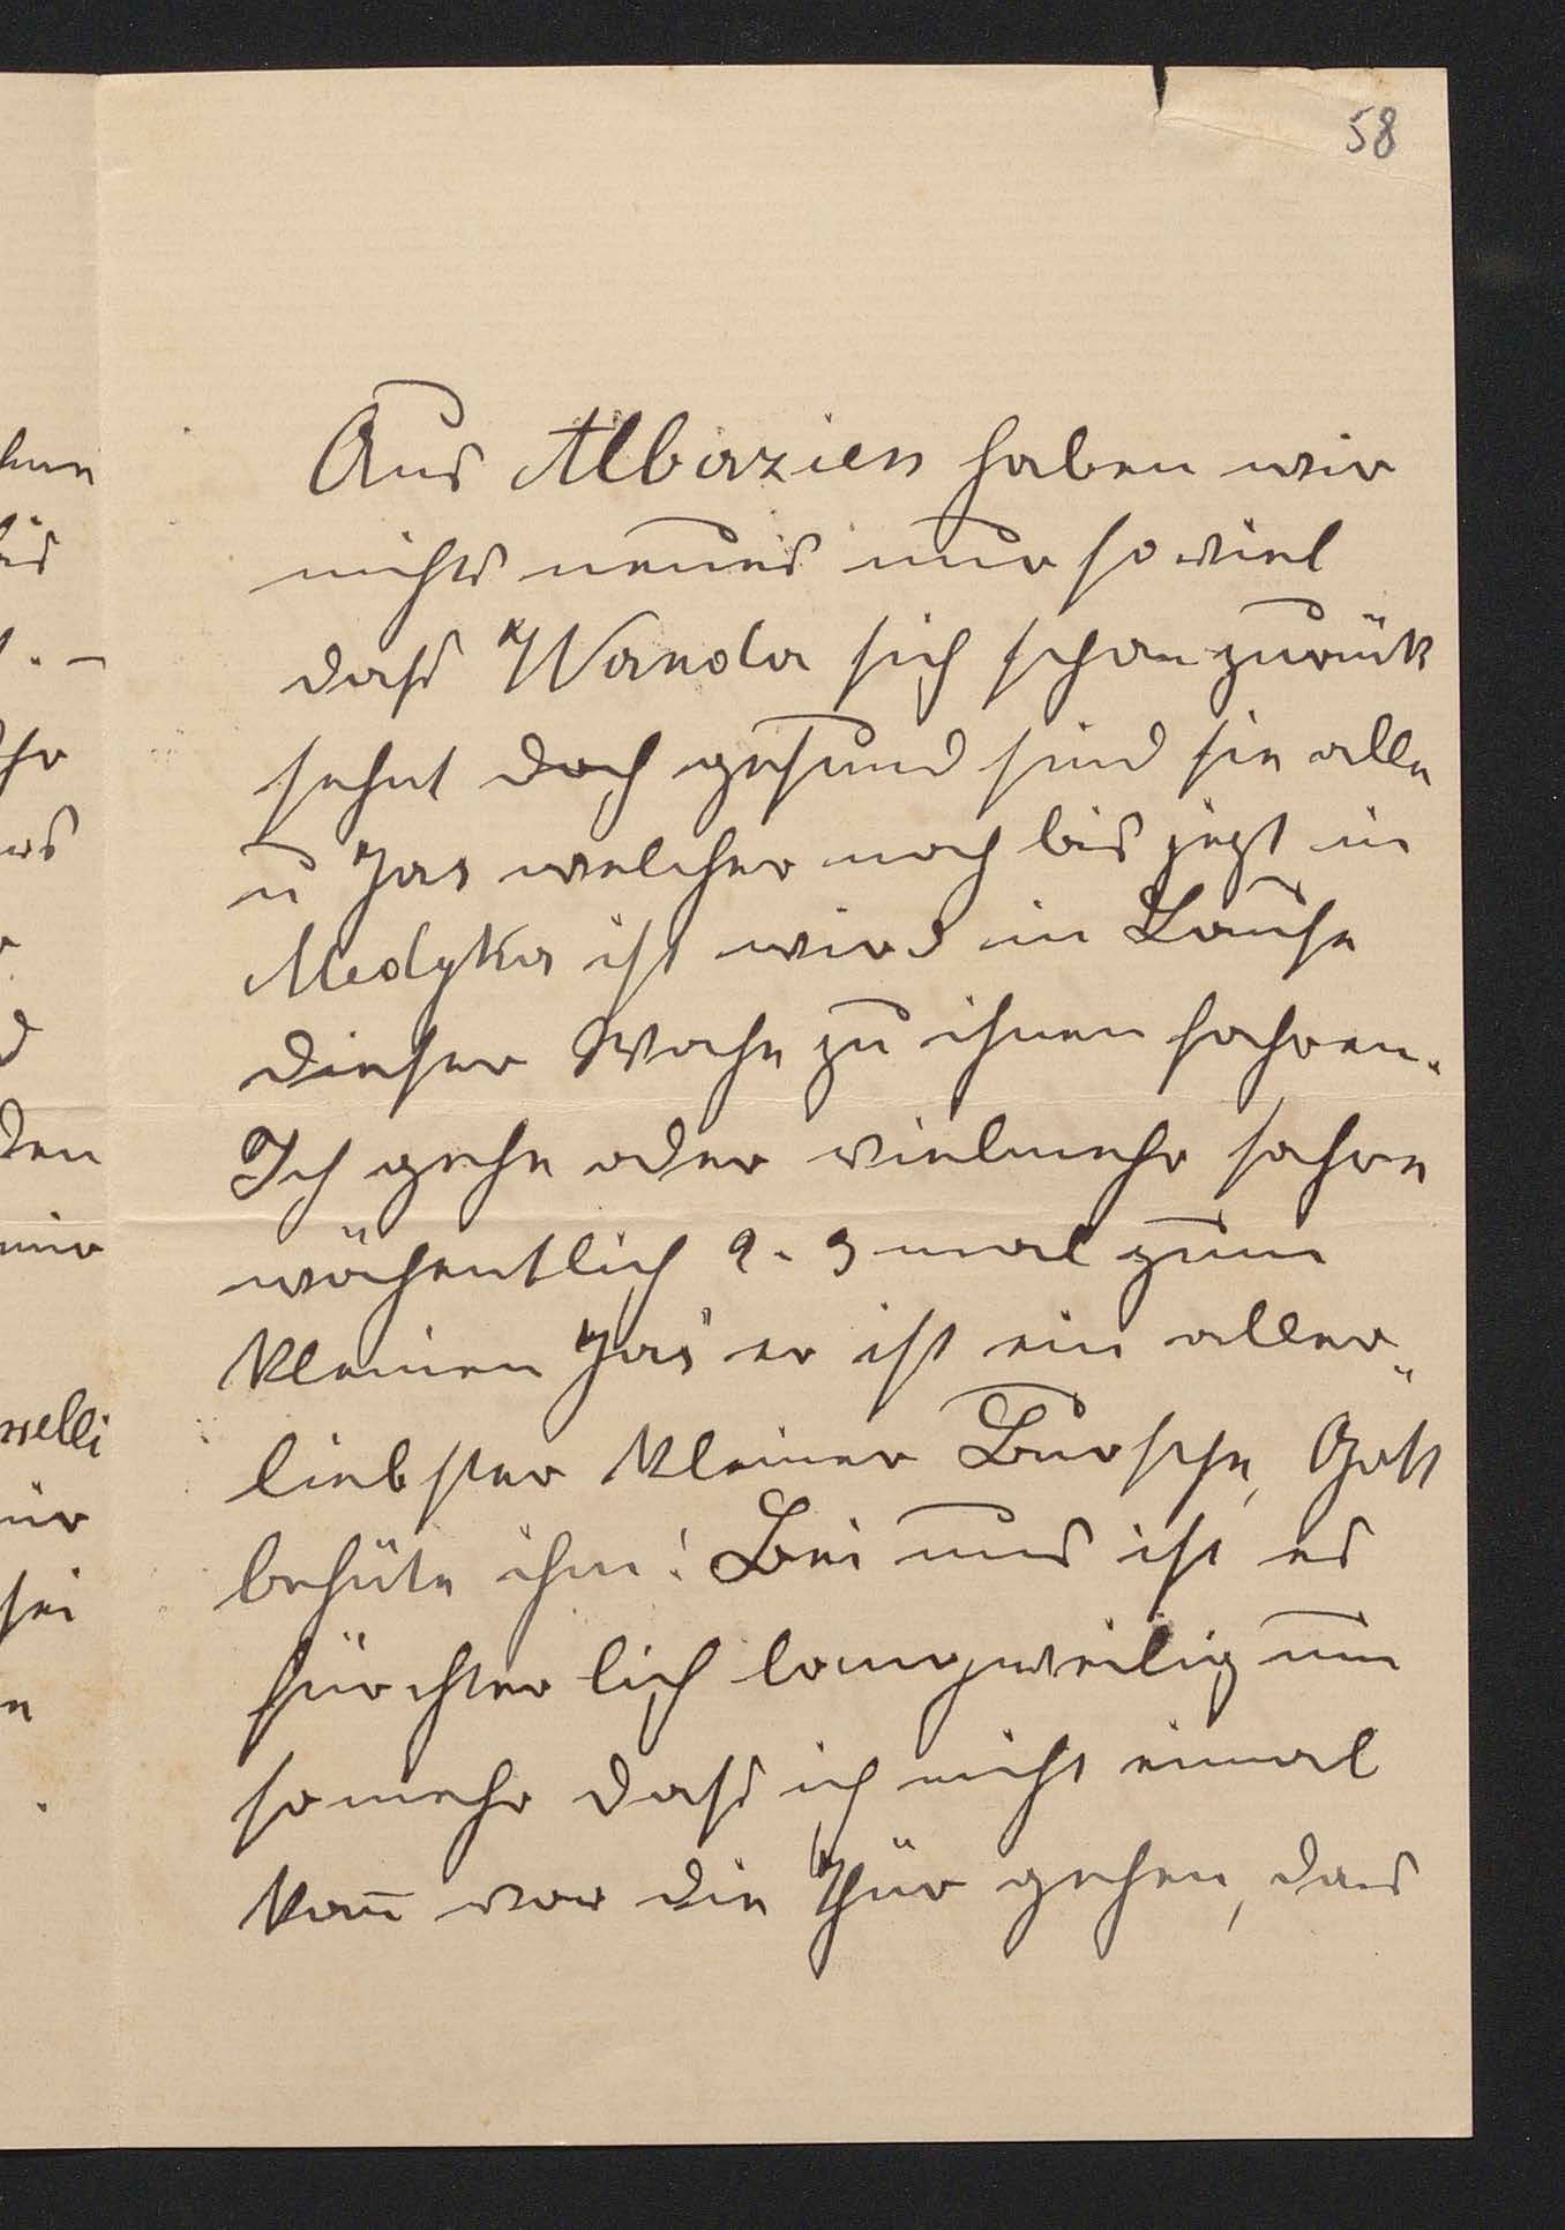 58
Aus Albazien haben wir
nichts neues nur so viel
dass Wanda sich schon zurück
sehnt doch gesund sind sie alle
u Jas welcher noch bis jezt in
Medyka ist wird im Laufe
dieser Woche zu ihnen fahren.
Ich gehe oder vielmehr fahre
wöchentlich 2-3 mal zum
kleinen Jaś er ist ein aller„
liebster kleiner Bursche, Gott
behüte ihn! Bei uns ist es
fürchterlich langweilig um
so mehr dass ich nicht einmal
kan̄ vor die Thür gehen, das